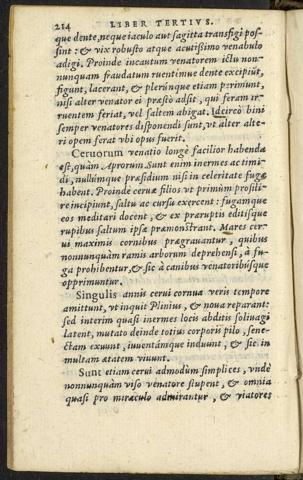 214 LIBER TERTIVS.
que dente, neque iaculo aut sagitta transfigi pos-
sint: & vix robusto atque acutissimo venabulo
adigi. Proinde incautum venatorem ictu non-
nunquam fraudatum ruentimue dente excipiũt,
figunt, lacerant, & plerũnque etiam perimunt,
nisi alter venator ei præsto adsit, qui feram ir-
ruentem feriat, vel saltem abigat. Idcircò bini
semper venatores disponendi sunt, vt alter alte-
ri opem ferat vbi opus fuerit.
Ceruorum venatio longè facilior habenda
est, quàm Aprorum. Sunt enim inermes ac timi-
di, nullúmque præsidium nisi in celeritate fugæ
habent. Proinde ceruæ filios vt primùm prosili-
re incipiunt, saltu ac cursu exercent: fugamque
eos meditari docent, & ex præruptis editisque
rupibus saltum ipsæ præmonstrant. Mares cer-
ui maximis cornibus prægrauantur, quibus
nonnunquàm ramis arborum deprehensi, à fu-
ga prohibentur, & sic à canibus venatoribúsque
opprimuntur.
Singulis annis cerui cornua veris tempore
amittunt, vt inquit Plinius, & noua reparant:
sed interim quasi inermes locis abditis soliuagi
latent, mutato deinde totius corporis pilo, sene-
ctam exuunt, iuuentámque induunt, & sic in
multam ætatem viuunt.
Sunt etiam cerui admodùm simplices, vndè
nonnunquàm viso venatore stupent, & omnia
quasi pro miraculo admirantur, & viatores